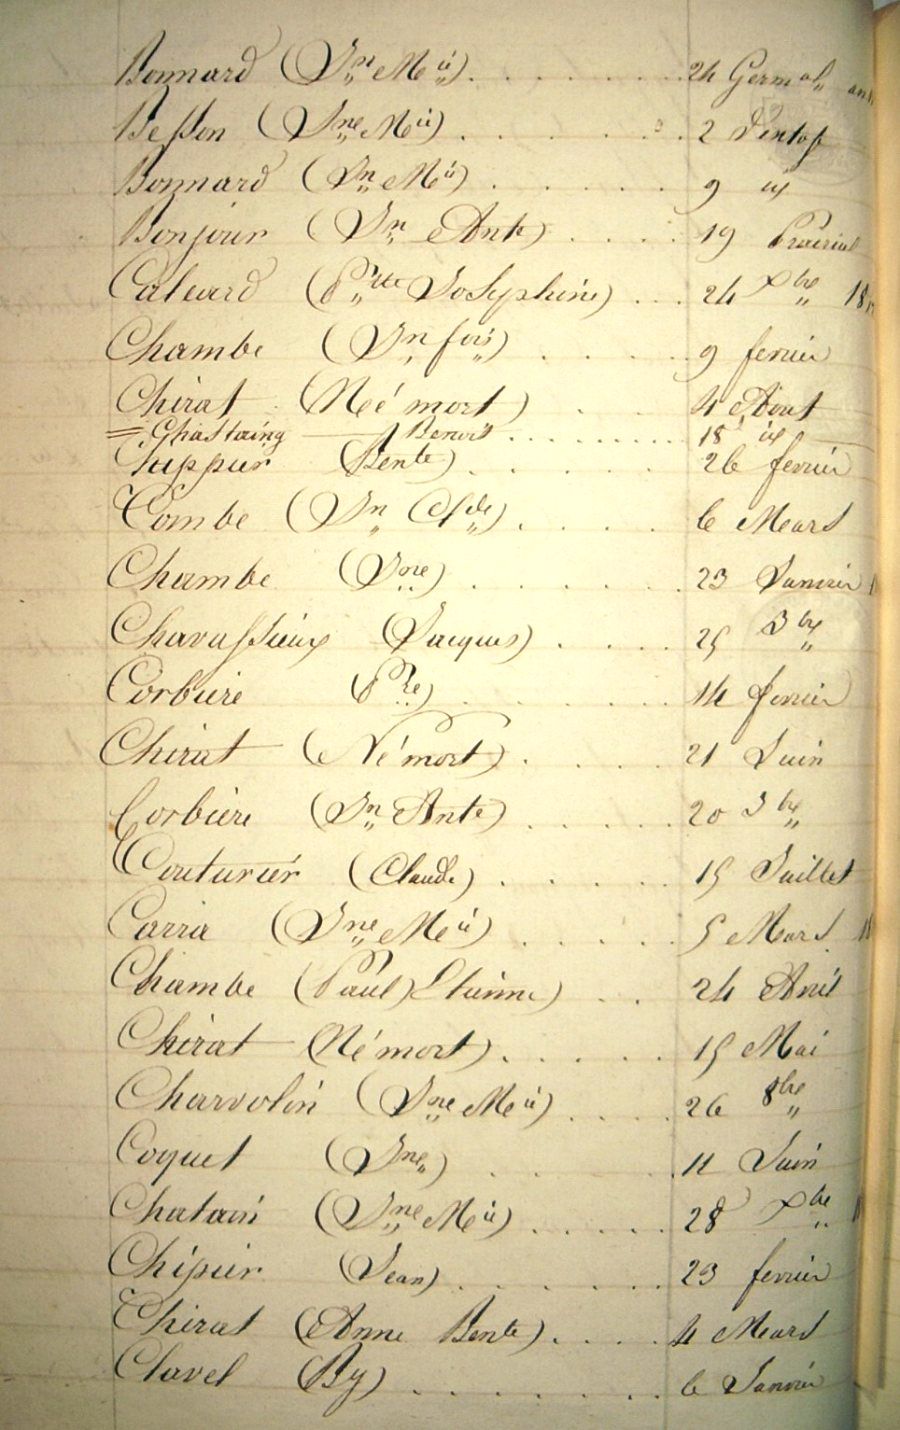 Bonnard (Jn Mie) . . . . . . . 24 Germal an
Besson (Jne Mie) . . . . . . 2 Ventose
Bonnard (Jn Mie) . . . . . 9 id
Bonjour (Jn Ante) . . . . 19 Prairial
Caluard (Prtte Josephine) . . . 24 Xbre 18
Chambe (Jn fois) . . . . 9 fevrier
Chirat (Né mort) . . . 4 Aout
= Chastaing Benoit . . . . . . . 18 id
(Bente) . . . . . 26 fevrier
Combe (Jn Clde) . . . . 6 Mars
Chambe (Jne) . . . . . . 23 Janvier
Chavassieux (Jacques) . . . . 25 Xbre
Corbiere (Pre) . . . . . . 14 fevrier
Chirat (Né mort) . . . . 21 Juin
Corbiere (Jn Ante) . . . . . 20
Couturier (Claude) . . . . . 15 Juillet
Carra (Jne Mie) . . . . . 5 Mars 18
Chambe (Paul) Etienne) . . 24 Avril
Chirat (Né mort) . . . . . 15 Mai
Charvolin (Jne Mie) . . . . 26 8bre
Coquet (Jne) . . . . 11 Juin
Chatain (Jne Mie) . . . . . 28 Xbre
Chipier (Jean) . . . . . . 23 fevrier
Chirat (Anne Bente) . . . . 4 Mars
Clavel (By) . . . . . . . 6 Janvier